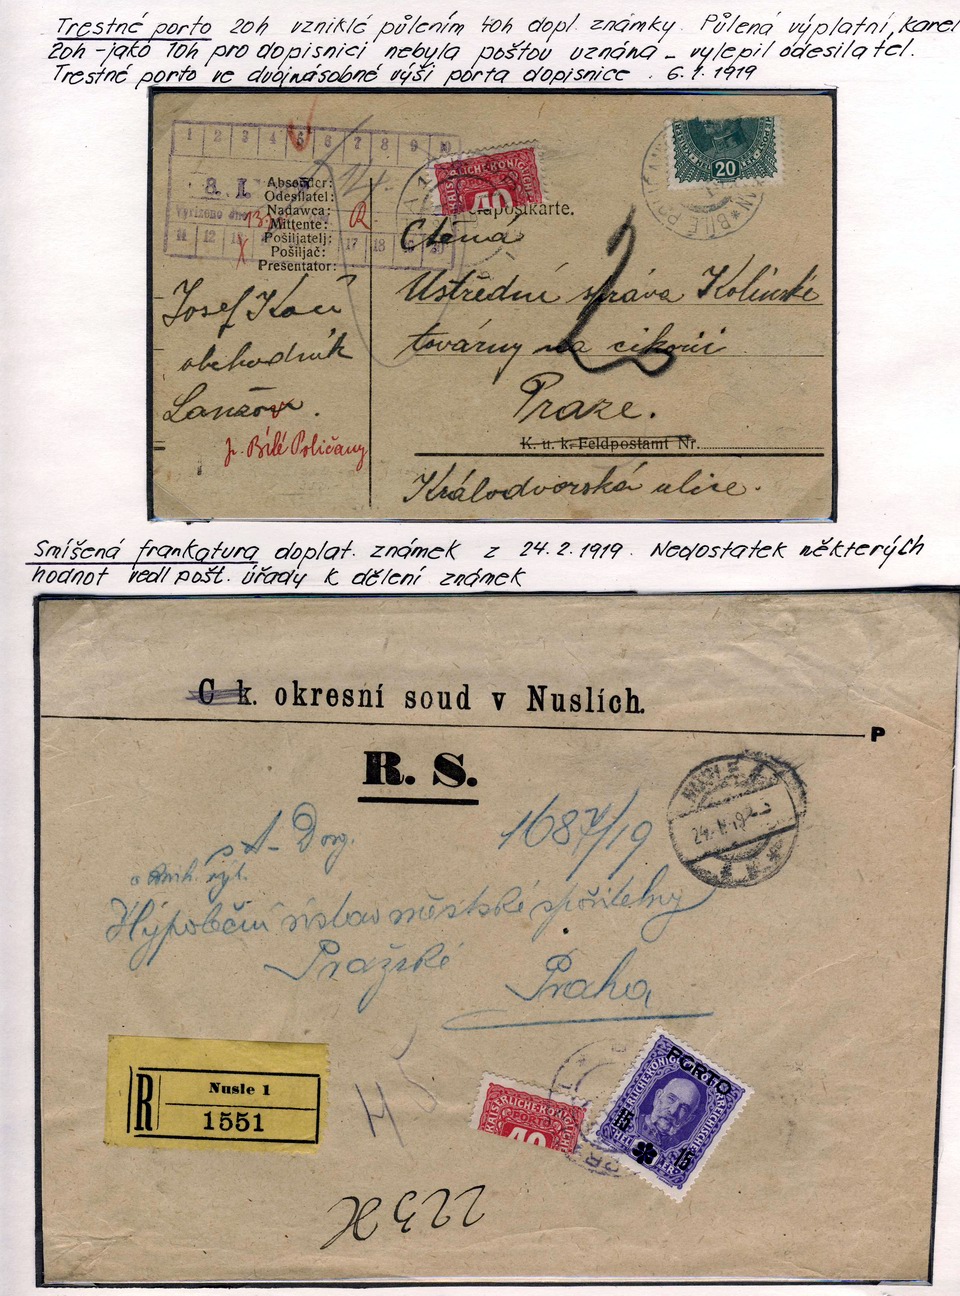 Trestné porto 20h vzniklé půlením 40h dopl. známky. Půlená výplatní, karel
20h - jako 10h pro dopisnici nebyla poštou uznána - vylepil odesilatel.
Trestné porto ve dvojnásobné výši porta dopisnice. 6.1.1919
1 2 3 4 5 6 7 8 9 10
8. I.
Vyřízeno dne
11 12 17 18 19 20
Absender:
Odesílatel:
Nadawca:
Mittente:
Pošiljatelj:
Pošiljač:
Presentator:
R
KAISERLICHE KÖNIGLICHE
40
20
Feldpostkarte.
Ctěná
2
Ustřední správa Kolínské
továrny na cikorii
Praze.
K. u. k. Feldpostamt Nr.
Královdvorská ulice.
Josef Kocí
obchodník
Lanžov.
p. Bílé Poličany
Smíšená frankatura doplat. známek z 24.2.1919. Nedostatek některých
hodnot vedl pošt. úřady k dělení známek
C k. okresní soud v Nuslích.
P
R. S.
NUSLE 1
24. II 19
1687/19
Hypoteční ústav městské spořitelny
Pražské
Praha
R
Nusle 1
1551
KAISERLICHE KÖNIGLICHE
PORTO
40
PORTO
15 15